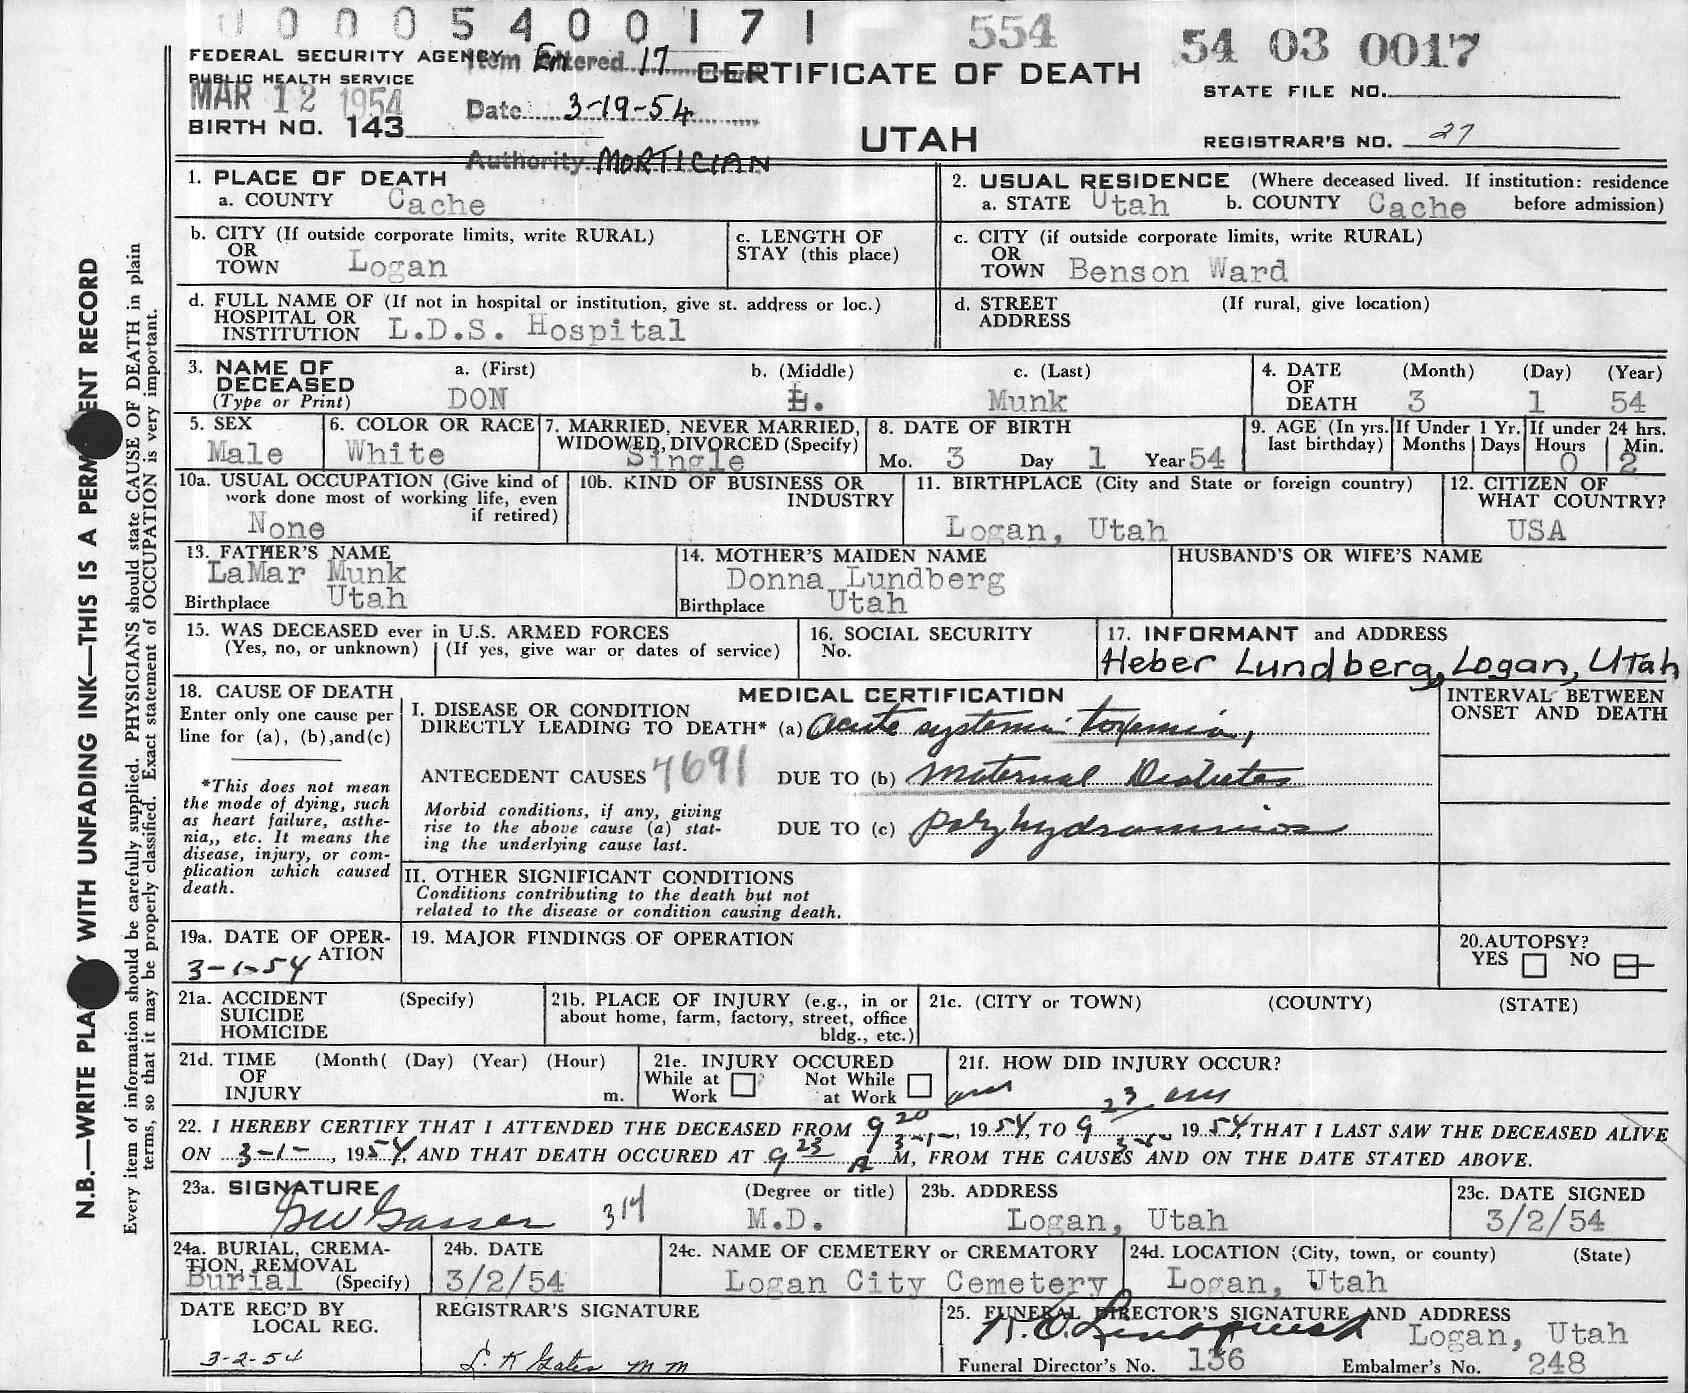 0 0 0 5 4 0 0 1 7 1
554
54 03 0017
FEDERAL SECURITY AGENCY
PUBLIC HEALTH SERVICE
MAR 12 1954
BIRTH NO. 143
Item Entered 17
Date 3-19-54
Authority MORTICIAN
CERTIFICATE OF DEATH
UTAH
STATE FILE NO.
REGISTRAR'S NO. 27
1. PLACE OF DEATH
a. COUNTY Cache
2. USUAL RESIDENCE (Where deceased lived. If institution: residence
a. STATE Utah b. COUNTY Cache before admission)
b. CITY (If outside corporate limits, write RURAL)
OR
TOWN Logan
c. LENGTH OF
STAY (this place)
c. CITY (if outside corporate limits, write RURAL)
OR
TOWN Benson Ward
d. FULL NAME OF (If not in hospital or institution, give st. address or loc.)
HOSPITAL OR
INSTITUTION L.D.S. Hospital
d. STREET (If rural, give location)
ADDRESS
3. NAME OF
DECEASED
(Type or Print)
a. (First) b. (Middle) c. (Last)
DON L. Munk
4. DATE (Month) (Day) (Year)
OF
DEATH 3 1 54
5. SEX
Male
6. COLOR OR RACE
White
7. MARRIED, NEVER MARRIED,
WIDOWED, DIVORCED (Specify)
Single
8. DATE OF BIRTH
Mo. 3 Day 1 Year 54
9. AGE (In yrs.
last birthday)
If Under 1 Yr.
Months Days
If under 24 hrs.
Hours Min.
0 2
10a. USUAL OCCUPATION (Give kind of
work done most of working life, even
if retired)
None
10b. KIND OF BUSINESS OR
INDUSTRY
11. BIRTHPLACE (City and State or foreign country)
Logan, Utah
12. CITIZEN OF
WHAT COUNTRY?
USA
13. FATHER'S NAME
LaMar Munk
Birthplace Utah
14. MOTHER'S MAIDEN NAME
Donna Lundberg
Birthplace Utah
HUSBAND'S OR WIFE'S NAME
15. WAS DECEASED ever in U.S. ARMED FORCES
(Yes, no, or unknown) (If yes, give war or dates of service)
16. SOCIAL SECURITY
No.
17. INFORMANT and ADDRESS
Heber Lundberg, Logan, Utah
18. CAUSE OF DEATH
Enter only one cause per
line for (a), (b),and(c)
*This does not mean
the mode of dying, such
as heart failure, asthe-
nia,, etc. It means the
disease, injury, or com-
plication which caused
death.
MEDICAL CERTIFICATION
I. DISEASE OR CONDITION
DIRECTLY LEADING TO DEATH* (a) Acute systemic toxemia,
ANTECEDENT CAUSES 7691 DUE TO (b) Maternal Diabetes
Morbid conditions, if any, giving
rise to the above cause (a) stat-
ing the underlying cause last.
DUE TO (c) Polyhydramnios
INTERVAL BETWEEN
ONSET AND DEATH
II. OTHER SIGNIFICANT CONDITIONS
Conditions contributing to the death but not
related to the disease or condition causing death.
19a. DATE OF OPER-
ATION
3-1-54
19. MAJOR FINDINGS OF OPERATION
20.AUTOPSY?
YES NO
21a. ACCIDENT (Specify)
SUICIDE
HOMICIDE
21b. PLACE OF INJURY (e.g., in or
about home, farm, factory, street, office
bldg., etc.)
21c. (CITY or TOWN) (COUNTY) (STATE)
21d. TIME (Month( (Day) (Year) (Hour)
OF
INJURY m.
21e. INJURY OCCURED
While at Not While
Work at Work
21f. HOW DID INJURY OCCUR?
am am
22. I HEREBY CERTIFY THAT I ATTENDED THE DECEASED FROM 9 20 3-1-, 1954, TO 9 23 3-1-, 1954, THAT I LAST SAW THE DECEASED ALIVE
ON 3-1-, 1954, AND THAT DEATH OCCURED AT 9 23 A M, FROM THE CAUSES AND ON THE DATE STATED ABOVE.
23a. SIGNATURE (Degree or title)
GW Gasser 314 M.D.
23b. ADDRESS
Logan, Utah
23c. DATE SIGNED
3/2/54
24a. BURIAL, CREMA-
TION, REMOVAL
Burial (Specify)
24b. DATE
3/2/54
24c. NAME OF CEMETERY or CREMATORY
Logan City Cemetery
24d. LOCATION (City, town, or county) (State)
Logan, Utah
DATE REC'D BY
LOCAL REG.
3-2-54
REGISTRAR'S SIGNATURE
25. FUNERAL DIRECTOR'S SIGNATURE AND ADDRESS
Logan, Utah
Funeral Director's No. 136 Embalmer's No. 248
N.B.—WRITE WITH UNFADING INK—THIS IS A RECORD
Every item of information should be carefully supplied. PHYSICIANS should state CAUSE OF DEATH in plain
terms, so that it may be properly classified. Exact statement of OCCUPATION is very important.